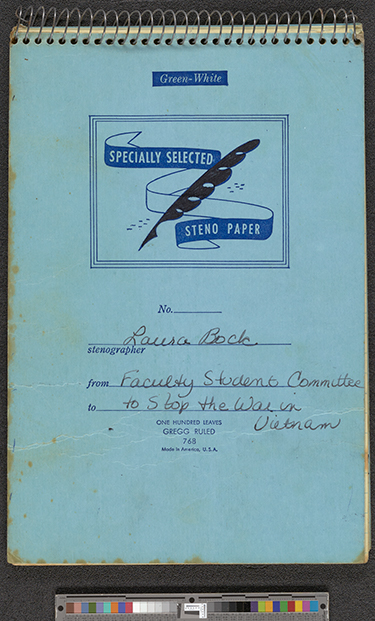 Green-White
SPECIALLY SELECTED
STENO PAPER
No.
Laura Bock
stenographer
from Faculty Student Committee
to to Stop the War in
Vietnam
ONE HUNDRED LEAVES
GREGG RULED
768
Made in America, U.S.A.